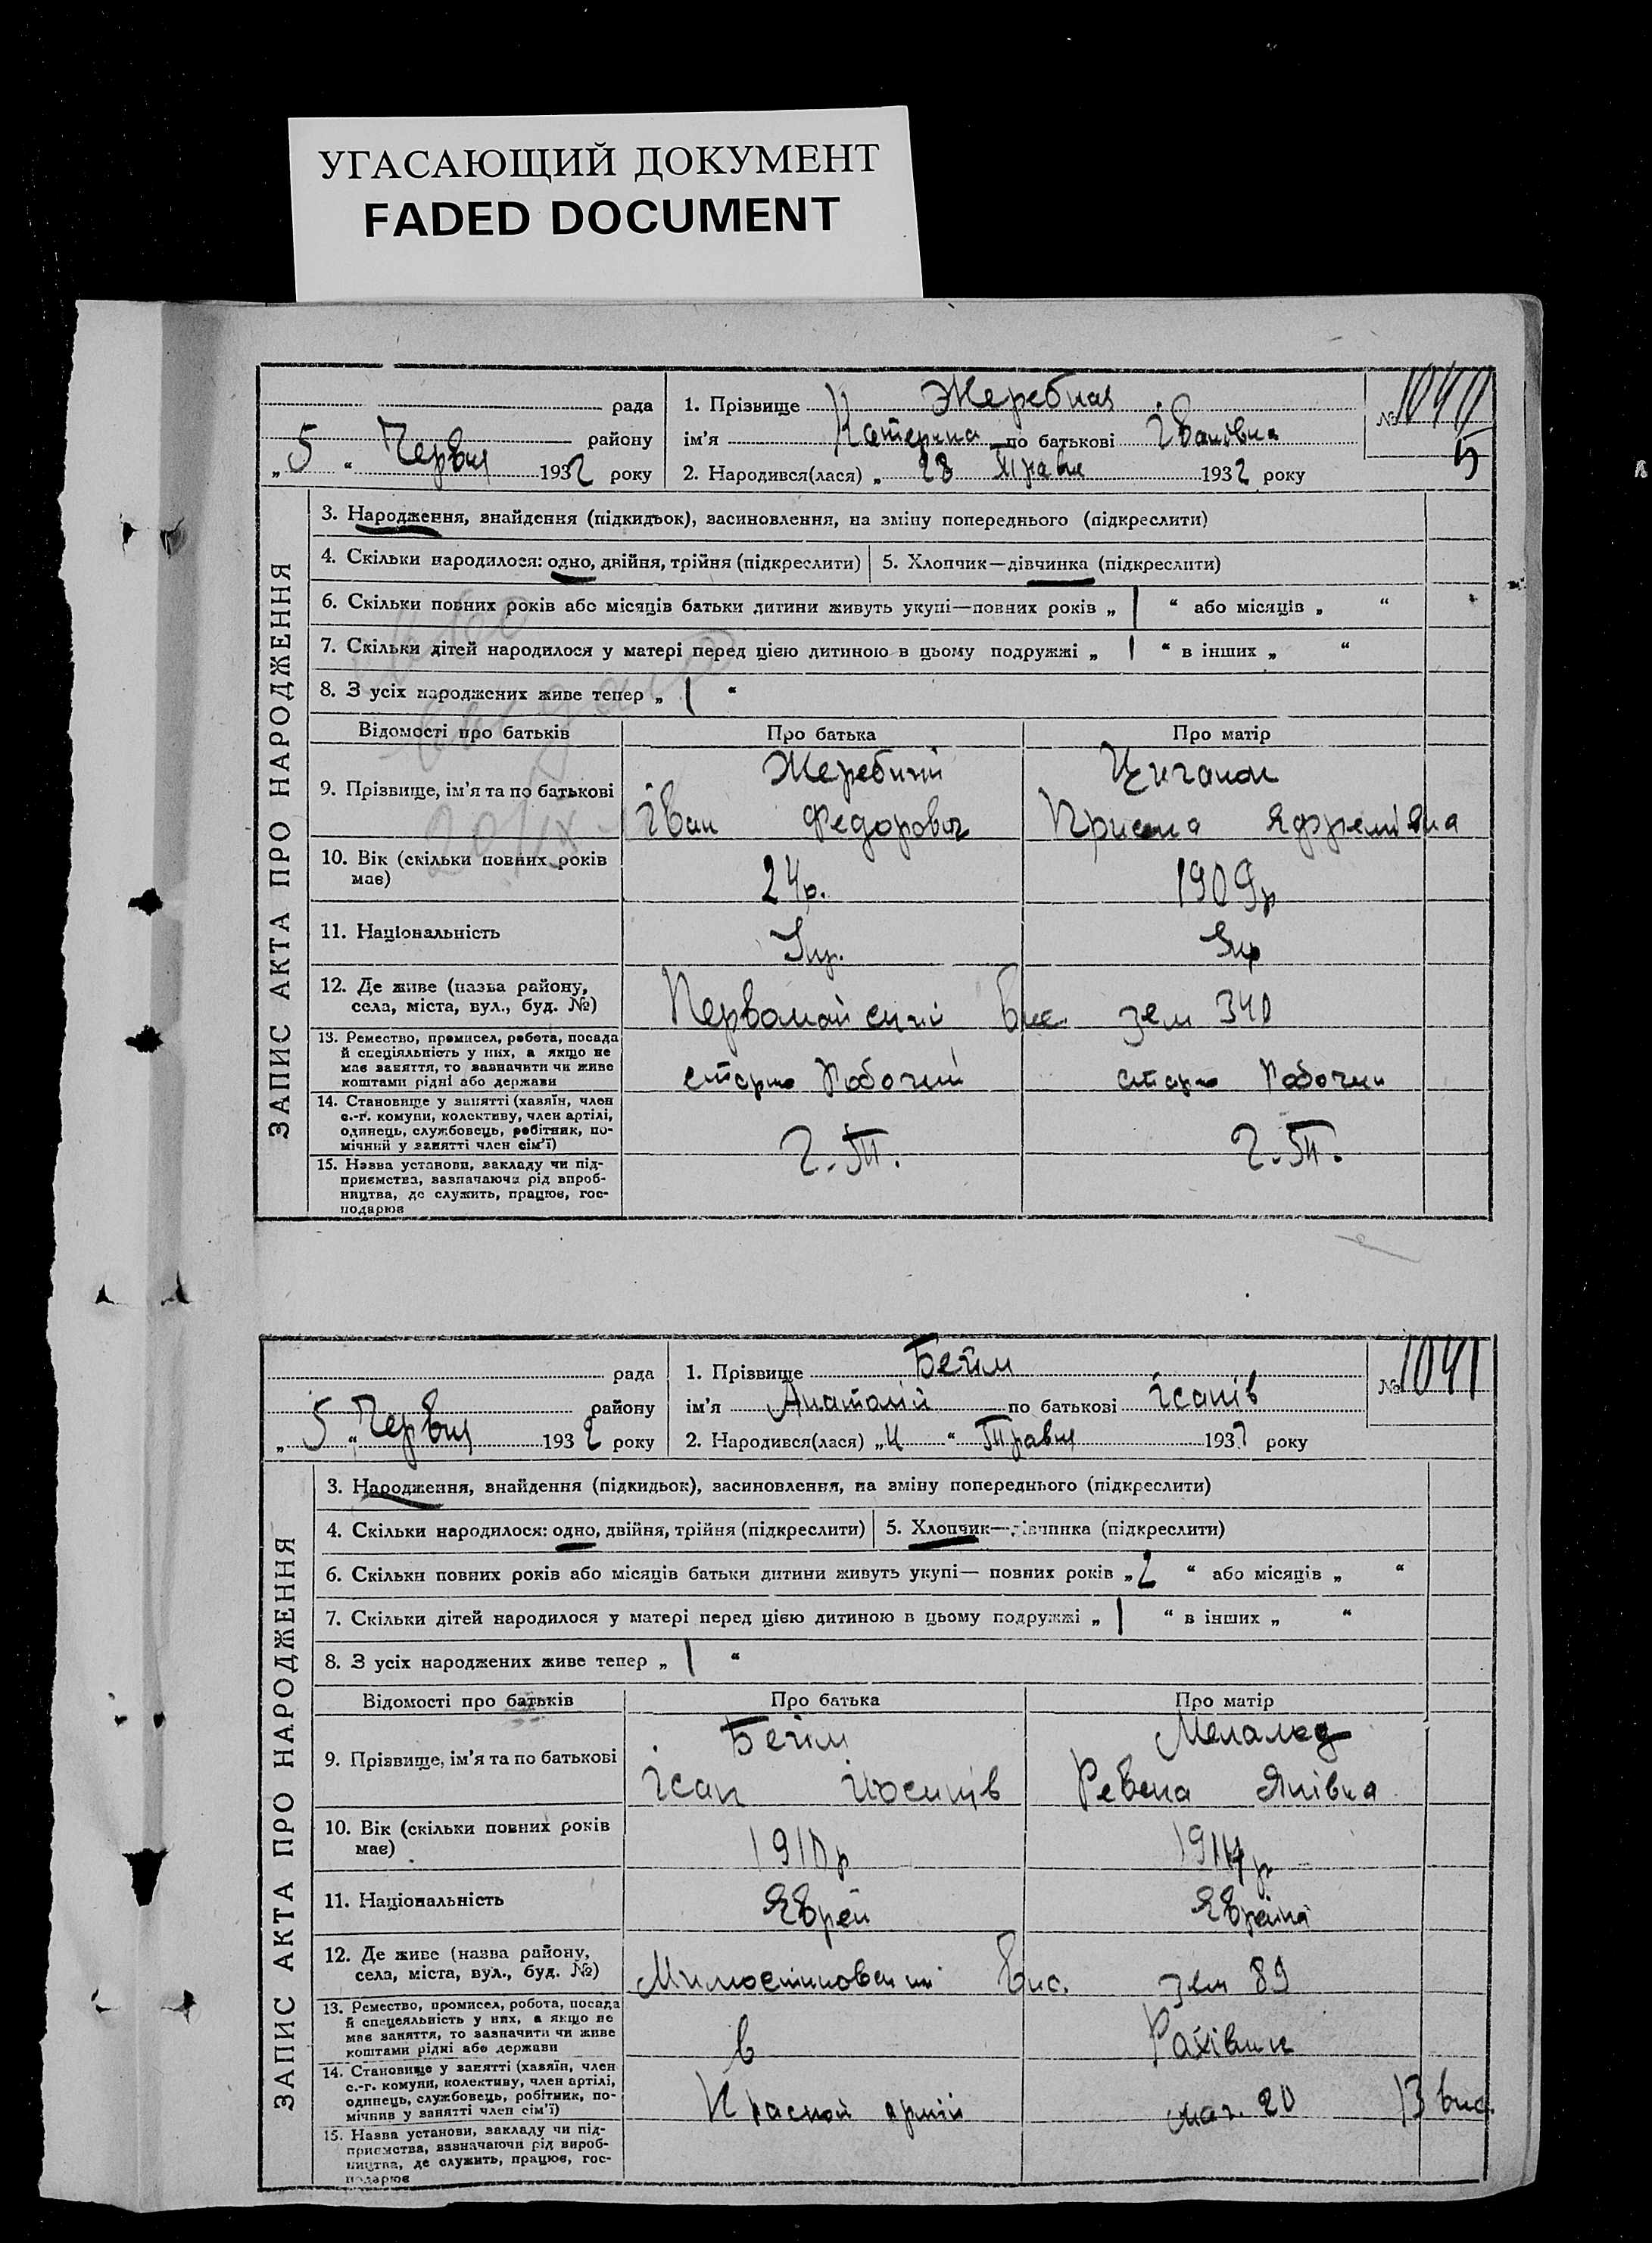 УГАСАЮЩИЙ ДОКУМЕНТ
FADED DOCUMENT
рада
району
„ 5 “ Червня 1932 року
1. Прізвище Жеребная
ім'я Катерина по батькові Івановна
2. Народився(лася) „ 28 Травня 1932 року
№ 1040
5
ЗАПИС АКТА ПРО НАРОДЖЕННЯ
3. Народження, знайдення (підкидьок), засиновлення, на зміну попереднього (підкреслити)
4. Скільки народилося: одно, двійня, трійня (підкреслити)
5. Хлопчик—дівчинка (підкреслити)
6. Скільки повних років або місяців батьки дитини живуть укупі—повних років „ 1 “ або місяців „ “
7. Скільки дітей народилося у матері перед цією дитиною в цьому подружжі „ 1 “ в інших „ “
8. З усіх народжених живе тепер „ 1 “
Відомості про батьків Про батька Про матір
9. Прізвище, ім'я та по батькові
Жеребний
Іван Федорович
Циганок
10. Вік (скільки повних років має)
24р. 1909р
11. Національність
Укр. Укр
12. Де живе (назва району,
села, міста, вул., буд. №)
Первомайский Вис. зем 340
13. Ремество, промисел, робота, посада
й спеціяльність у них, а якщо не
має заняття, то зазначити чи живе
коштами рідні або держави
Робочий Робочий
14. Становище у занятті (хазяїн, член
с.-г. комуни, колективу, член артілі,
одинець, службовець, робітник, по-
мічний у занятті член сім'ї)
15. Назва установи, закладу чи під-
приємства, зазначаючи рід вироб-
ництва, де служить, працює, гос-
подарює
рада
району
„ 5 “ Червня 1932 року
1. Прізвище Бейм
ім'я Анатолій по батькові Ісаків
2. Народився(лася) „ “ Травня 1932 року
№ 1041
ЗАПИС АКТА ПРО НАРОДЖЕННЯ
3. Народження, знайдення (підкидьок), засиновлення, на зміну попереднього (підкреслити)
4. Скільки народилося: одно, двійня, трійня (підкреслити)
5. Хлопчик—дівчинка (підкреслити)
6. Скільки повних років або місяців батьки дитини живуть укупі— повних років „ 2 “ або місяців „ “
7. Скільки дітей народилося у матері перед цією дитиною в цьому подружжі „ 1 “ в інших „ “
8. З усіх народжених живе тепер „ 1 “
Відомості про батьків Про батька Про матір
9. Прізвище, ім'я та по батькові
Бейм
Ісак Йосипів
Меламед
Ревека Янівна
10. Вік (скільки повних років має)
1910р 1914р
11. Національність
Яврей Яврейка
12. Де живе (назва району,
села, міста, вул., буд. №)
Вис. зем 89
13. Ремество, промисел, робота, посада
й спецеяльність у них, а якщо не
має заняття, то зазначити чи живе
коштами рідні або держави
в
14. Становище у занятті (хазяїн, член
с.-г. комуни, колективу, член артілі,
одинець, службовець, робітник, по-
мічнив у занятті член сім'ї)
Красной армии маг. 20 13 вис.
15. Назва установи, закладу чи під-
приємства, вазначаючи рід вироб-
ництва, де служить, працює, гос-
подарює